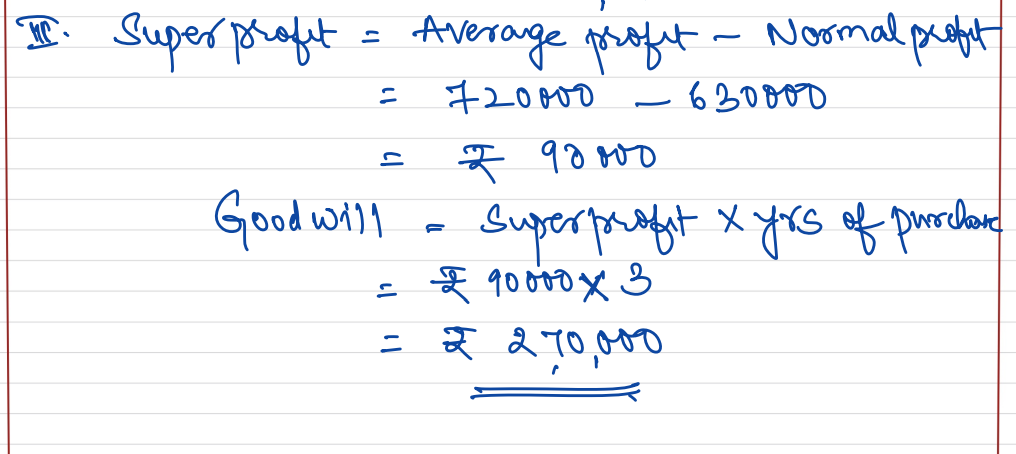 III. Super profit = Average profit - Normal profit
= 720000 - 630000
= ₹ 90000
Goodwill = Super profit x yrs of purchase
= ₹ 90000 x 3
= ₹ 270,000